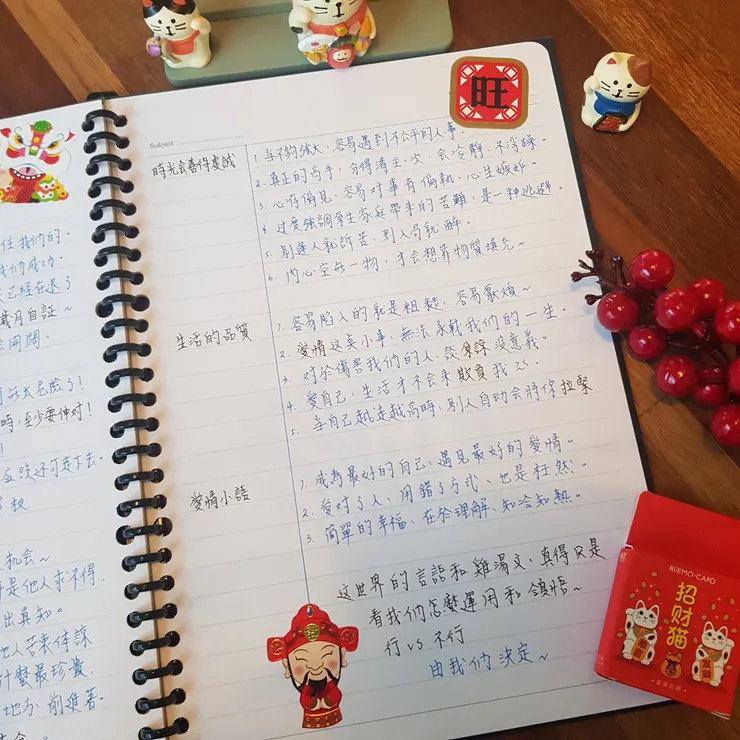 住我们的。
我们成功。
已經在退了
歲月自証~
時,至少要神对!
应該还可走下去。
机会~
是他人求不得.
出真知。
什麼最珍貴.
地方,前進著.
Subject:
旺
時光会善待虔誠
1. 当不夠強大,容易遇到不公平的人事。
2. 真正的高手,分得清主次,会冷靜,不浮躁。
3. 心存偏見,容易对事有偏執,心生嫉妒。
4. 过度強調原生家庭帶來的苦難,是一种逃避。
5. 別逢人就訴苦,別入局就解。
6. 內心空無一物,才会想靠物質填充~
生活的品質
1. 容易陷入的就是粗糙,容易厭煩~
2. 愛情这类小事,無法承載我們的一生。
3. 对於傷害我們的人,談原諒沒意義。
4. 愛自己,生活才不会来欺負找
5. 当自己越走越高時,別人自动会將你拉緊
愛情小語
1. 成為最好的自己,遇見最好的愛情。
2. 愛对了人,用錯了方式,也是枉然.
3. 簡單的幸福,在於理解、知冷知熱。
这世界的言語和雞湯文,真得只是
看我们怎麼運用和領悟~
行 vs 不行
由我们決定~
MO·CARD
招财猫